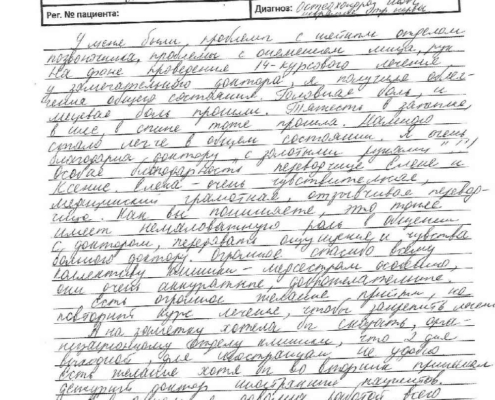 Рег. № пациента: Диагноз: Остеохондроз
У меня были проблемы с шейным отделом
позвоночника, проблемы с онемением лица, рук
На фоне проведения 14-курсового лечения
у замечательного доктора, я получила облег-
чения общего состояния. Головная боль, и
боль прошли. Тяжесть в затылке,
в шее, в спине тоже прошла. Намного
стало легче в общем состоянии. Я очень
благодарна доктору „с золотыми руками"
Особая благодарность переводчице Елене и
Ксение. Елена - очень чувствительная,
медицински грамотная, отзывчивая перевод-
чица. Как вы понимаете, это тоже
имеет немаловажную роль в общении
с доктором, передавая ощущения и чувства
больного доктору. Огромное спасибо всему
коллективу клиники - медсестрам особенно,
они очень аккуратные, доброжелательные.
Есть огромное желание прийти, на
повторный курс лечение, чтобы закрепить
А на заметку хотела бы сказать, орга-
низационному отделу клиники, что 2 дня
выходной, для иностранцам не удобно
Есть желание хотя бы во вторник принимал
дежурный доктор иностранных пациентов.
работой всего